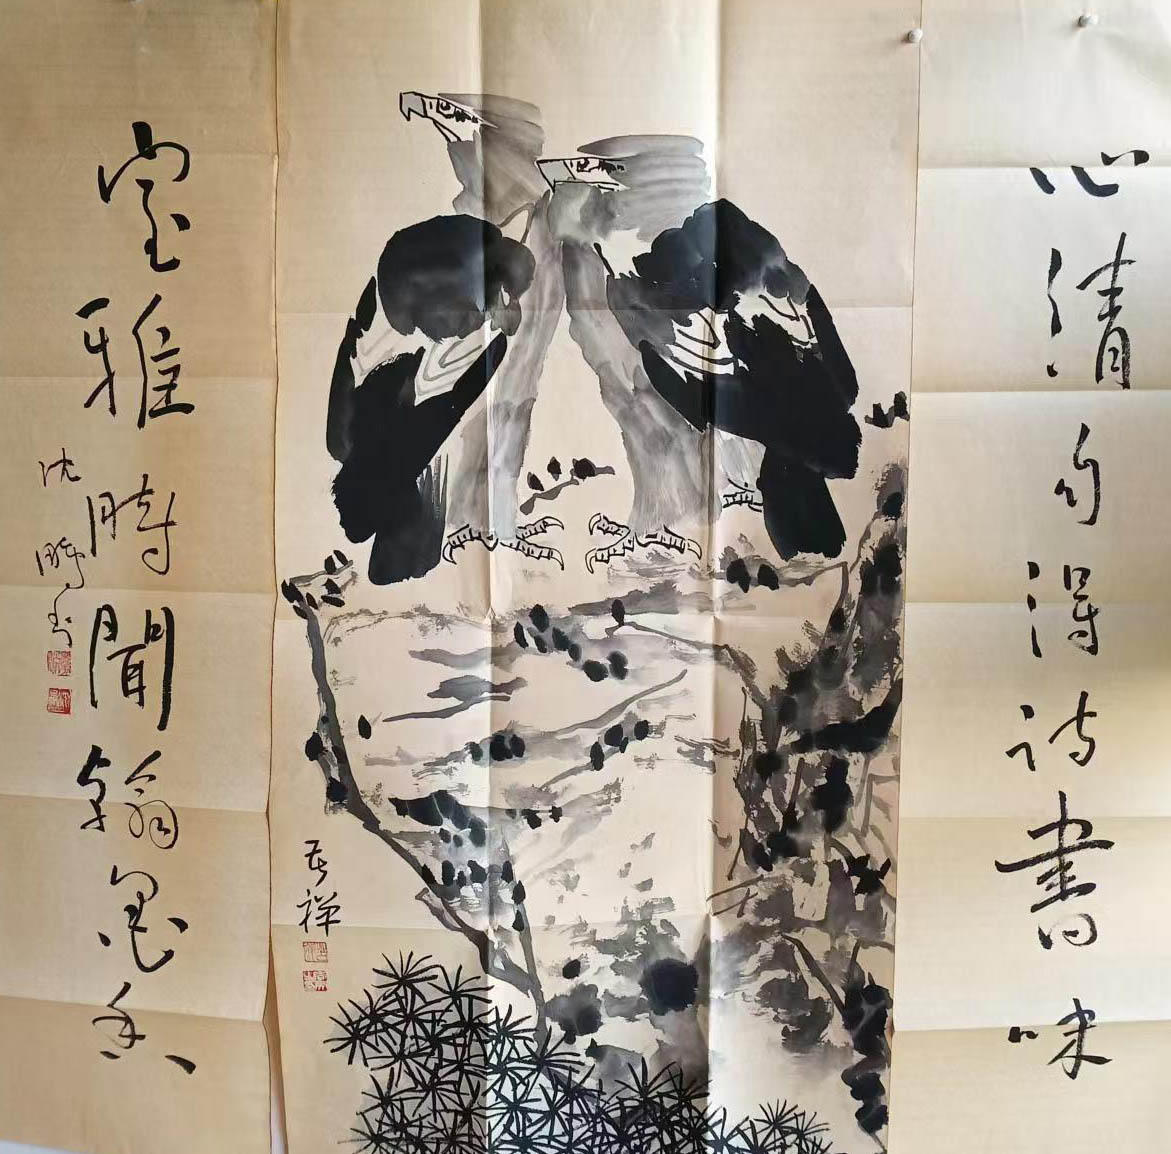 心清自得詩書味
室雅時聞翰墨香
沈鵬書
苦禪